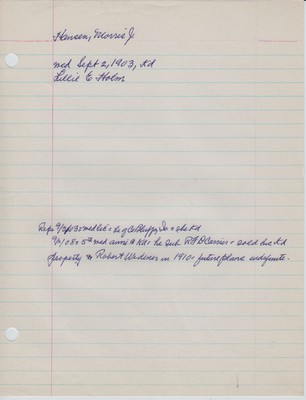 Hansen, Morris J
med Sept 2, 1903, Kd
Lillie E Holm
Reps 9/3/03 = med lic = he of Co Bluffs, Ia = she Kd
9/10/08 = 5th med anni @ Kd = he sub RFD Carrier = sold his Kd
property to Robert in 1910 = future plans indefinite.